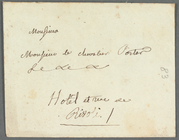 Monsieur
Monsieur le chevalier Porter
&c &c &c
Hotel et rue de
Rivoli